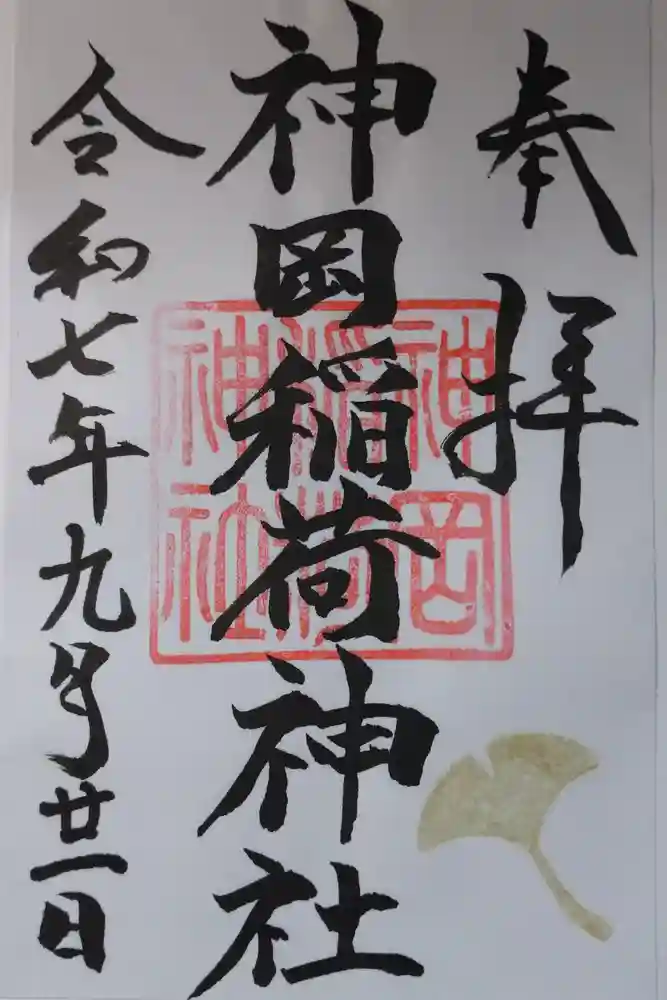 奉拝
神岡稲荷神社
神岡稲荷神社
令和七年九月廿一日